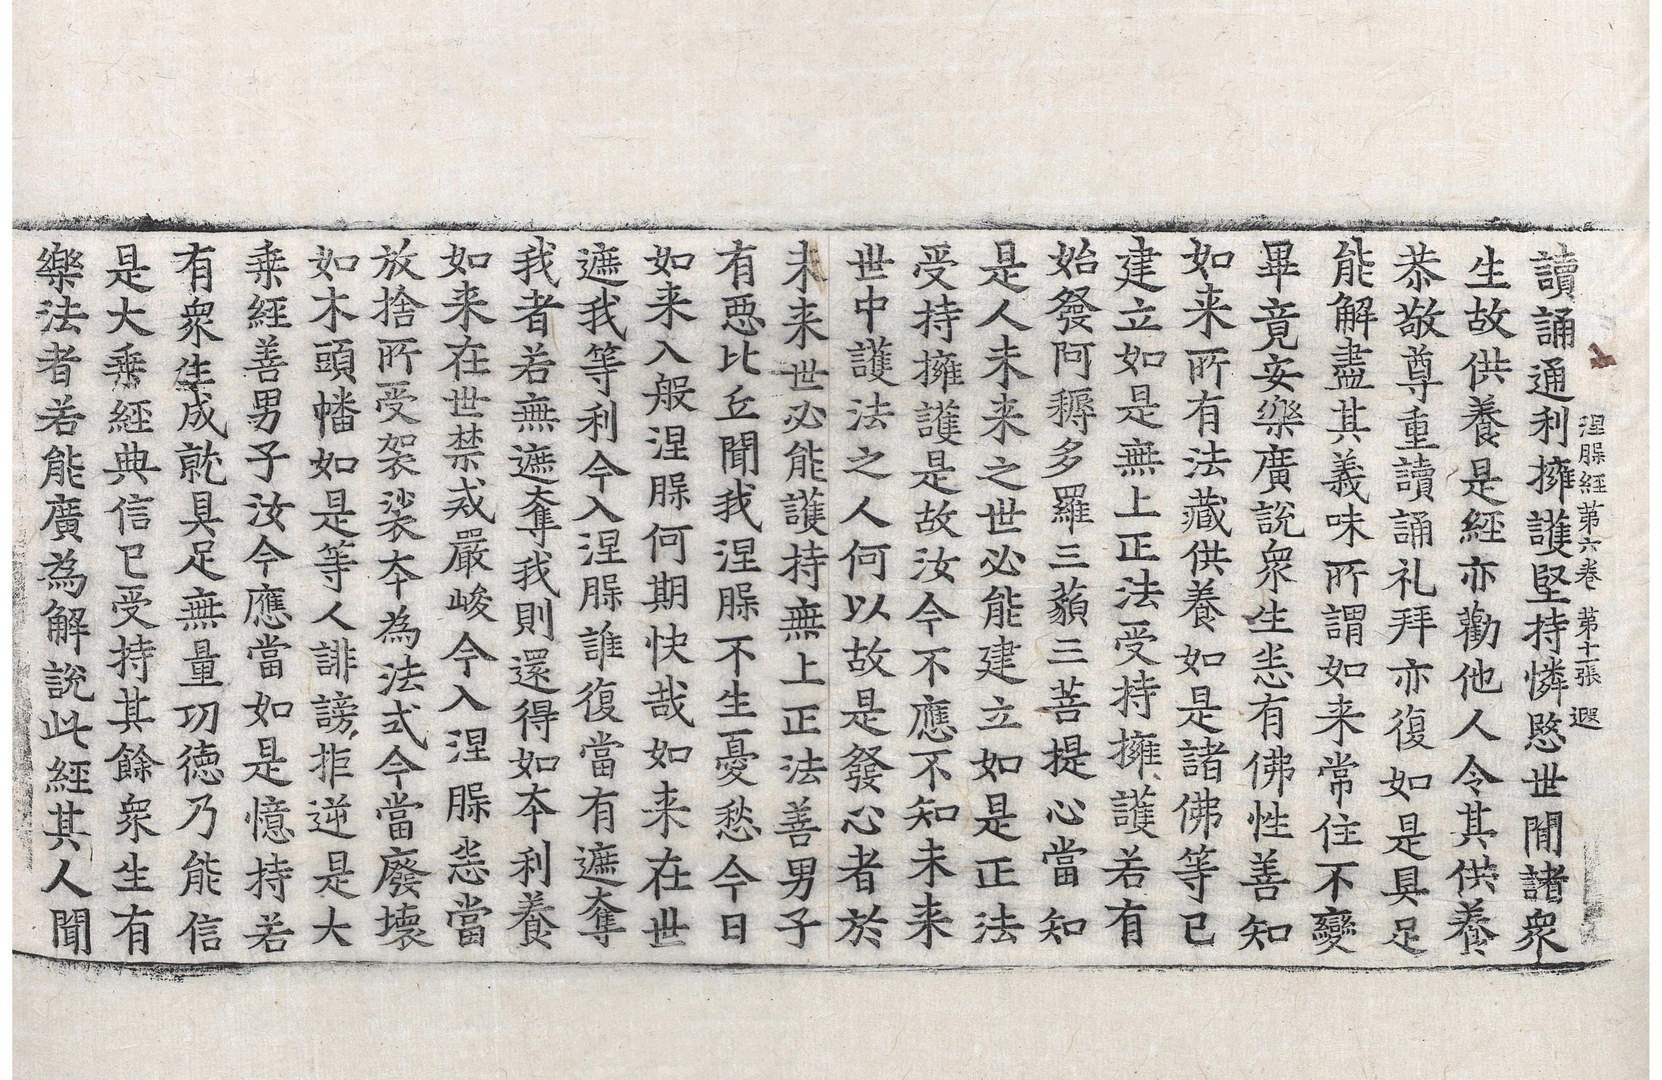 涅槃経第六卷 第十一張 遐
讀誦通利擁護堅持憐愍世間諸衆
生故供養是經亦勸他人令其供養
恭敬尊重讀誦礼拜亦復如是具足
能解盡其義味所謂如来常住不變
畢竟安樂廣說衆生悉有佛性善知
如来所有法藏供養如是諸佛等已
建立如是無上正法受持擁護若有
始發阿耨多羅三藐三菩提心當知
是人未来之世必能建立如是正法
受持擁護是故汝今不應不知未来
世中護法之人何以故是發心者於
未来世必能護持無上正法善男子
有惡比丘聞我涅槃不生憂愁今日
如来入般涅槃何期快哉如来在世
遮我等利今入涅槃誰復當有遮奪
我者若無遮奪我則還得如本利養
如来在世禁戒嚴峻今入涅槃悉當
放捨所受袈裟本為法式今當廢壞
如木頭幡如是等人誹謗拒逆是大
乗經善男子汝今應當如是憶持若
有衆生成就具足無量功徳乃能信
是大乗經典信已受持其餘衆生有
樂法者若能廣為解說此經其人聞